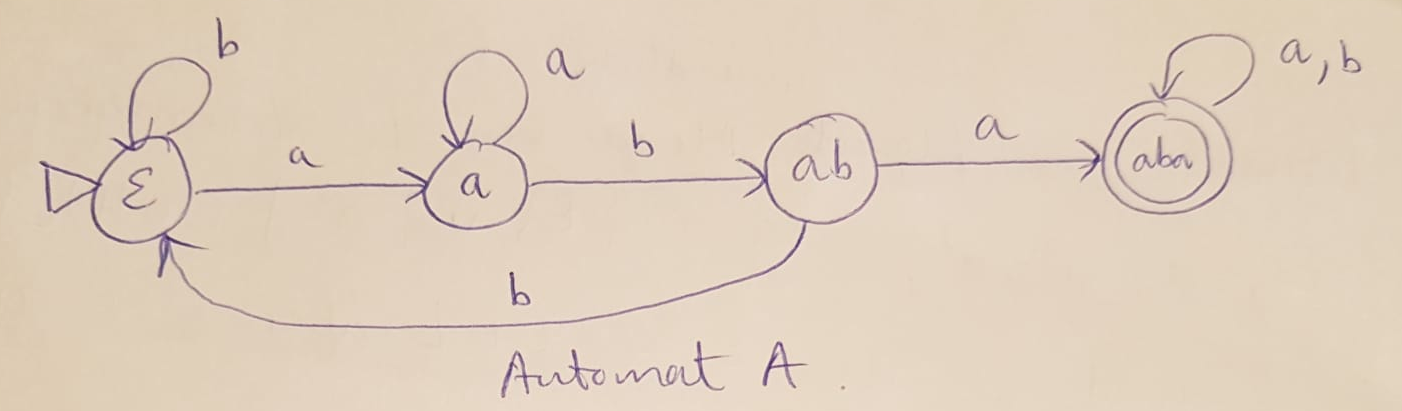 b
a
a, b
a
b
a
ε
a
ab
aba
b
Automat A.